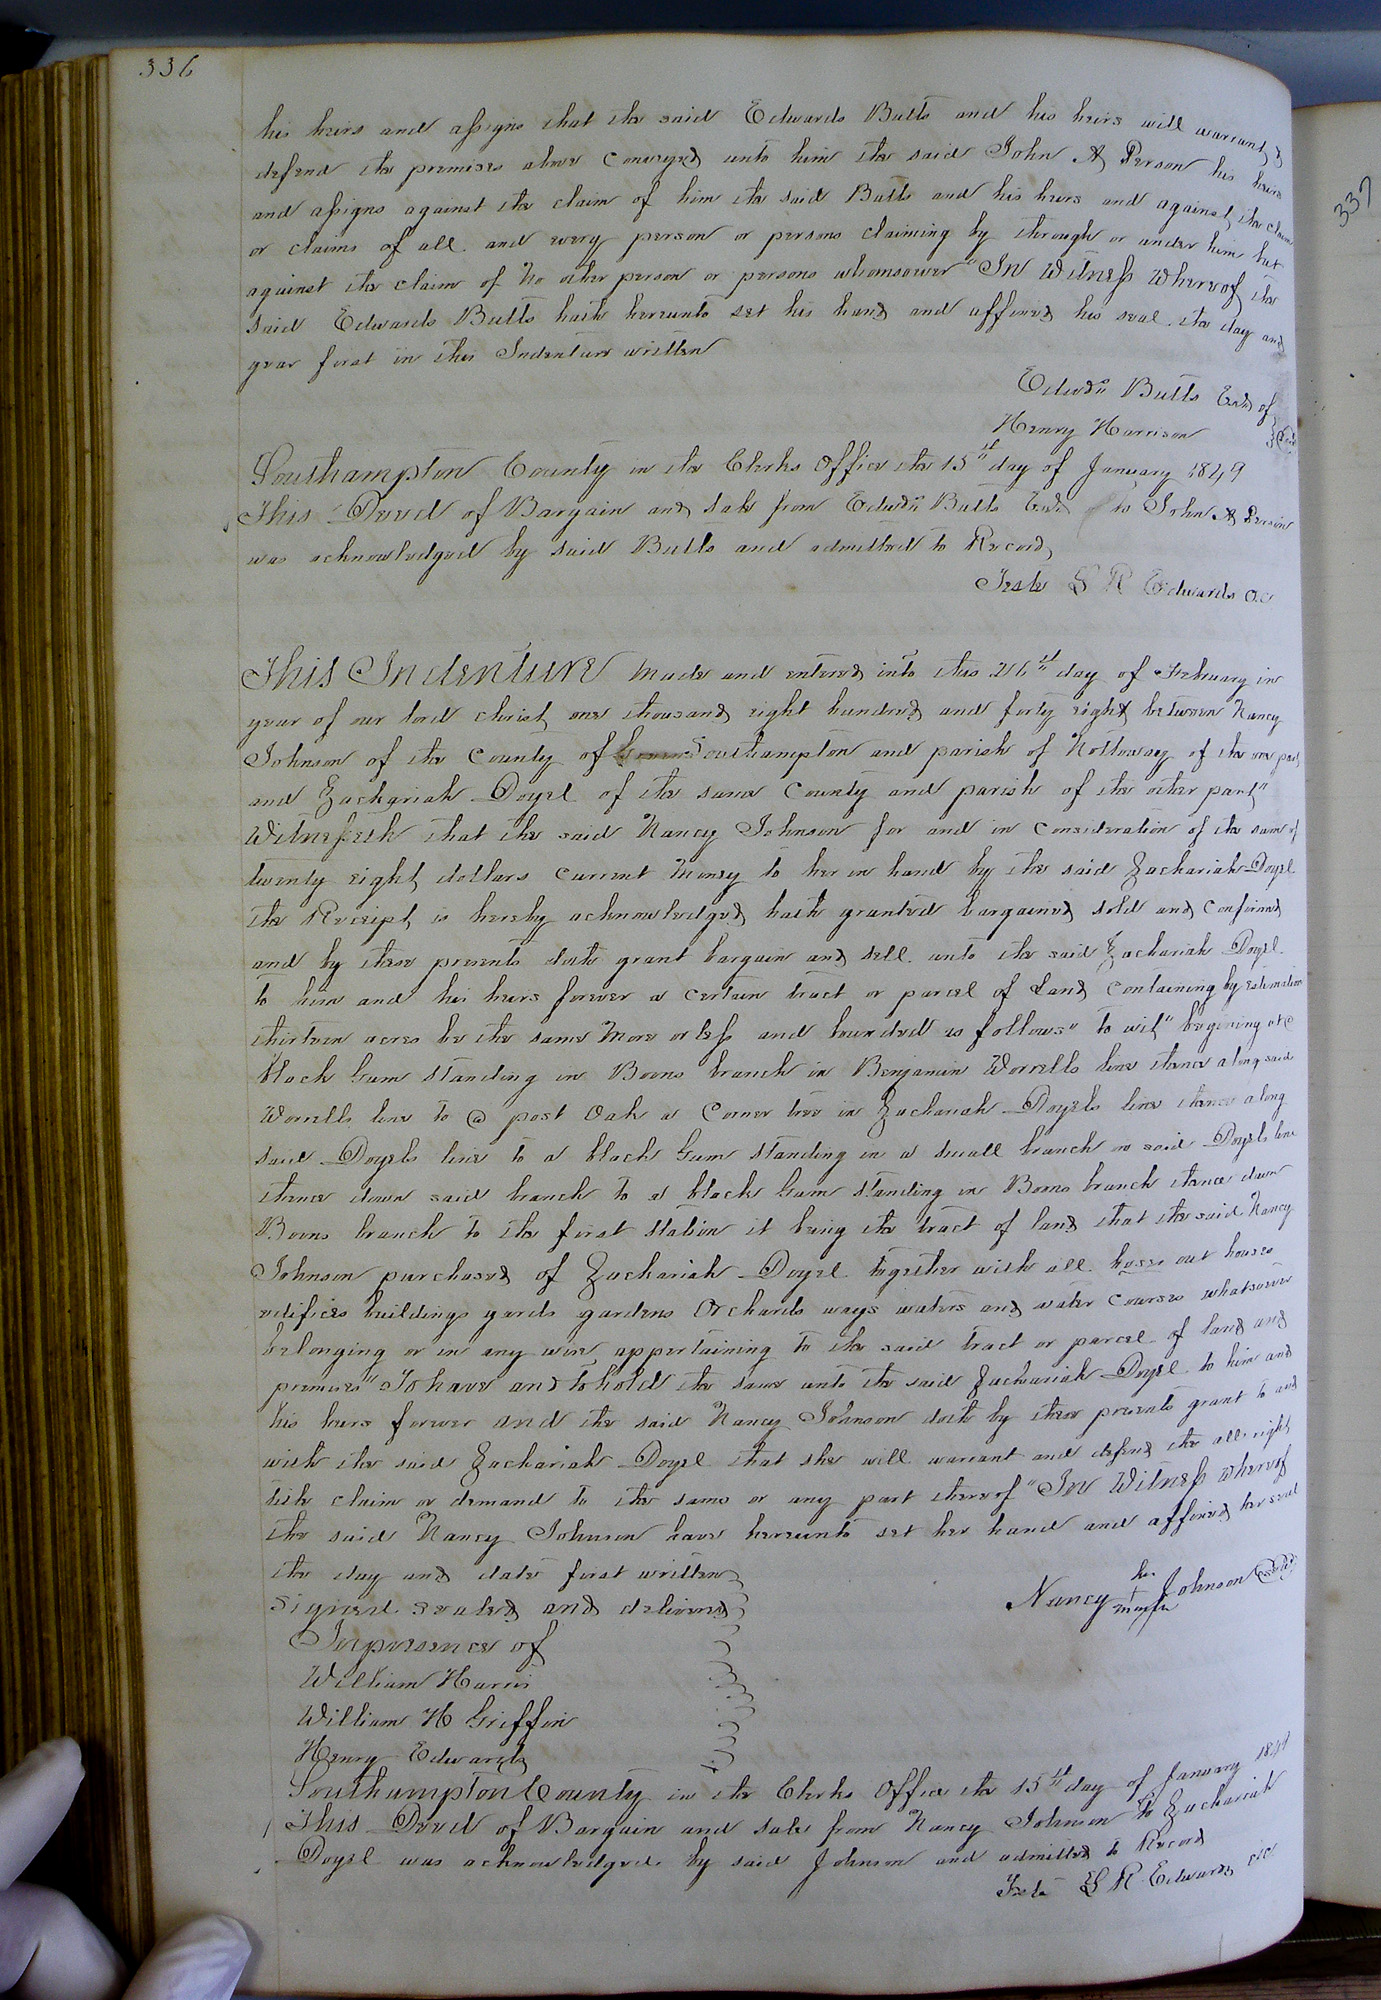 336
his heirs and assigns that the said Edwards Butts and his heirs will warrant &
defend the premises above Conveyed unto him the said John A Person his heirs
and assigns against the claim of him the said Butts and his heirs and against the claim
or claims of all and every person or persons claiming by through or under him but
against the claim of No other person or persons whomsoever "In Witness Whereof the
said Edwards Butts hath hereunto set his hand and affixed his seal the day and
year first in this Indenture written
Edwds Butts Exd of
Henry Harrison
Southampton County in the Clerks Office the 15th day of January 1849
This Deed of Bargain and Sale from Edwds Butts Exd to John A Person
was acknowledged by said Butts and admitted to Record
Teste L R Edwards CC
This Indenture Made and entered into this 26th day of February in
year of our lord christ one thousand eight hundred and forty eight between Nancy
Johnson of the County of Southampton and parish of Nottoway of the one part
and Zachariah Doyel of the same County and parish of the other part"
Witnesseth that the said Nancy Johnson for and in Consideration of the sum of
twenty eight dollars Current Money to her in hand by the said Zachariah Doyel
the Receipt is hereby acknowledged hath granted bargained sold and Confirmed
and by these presents doth grant bargain and sell unto the said Zachariah Doyel
to him and his heirs forever a certain tract or parcel of Land Containing by estimation
thirteen acres be the same More or less and bounded as follows" to wit" begining at a
black Gum standing in Boons branch in Benjamin Worrells line thence along said
Worrells line to a post Oak a Corner tree in Zachariah Doyels line thence along
said Doyels line to a black Gum standing in a small branch in said Doyels line
thence down said branch to a black Gum standing in Boons branch thence down
Boons branch to the first station it being the tract of land that the said Nancy
Johnson purchased of Zachariah Doyel together with all houses out houses
edifices buildings yards gardens Orchards ways waters and water Courses whatsoever
belonging or in any wise appertaining to the said tract or parcel of land and
premises" To have and to hold the same unto the said Zachariah Doyel to him and
his heirs forever and the said Nancy Johnson doth by these presents grant to and
with the said Zachariah Doyel that she will warrant and defend the all right
title claim or demand to the same or any part thereof "In Witness whereof
the said Nancy Johnson have hereunto set her hand and affixed her seal
the day and date first written
Signed sealed and delivered
In presence of
her
Nancy + Johnson Seal
mark
William Harris
William H Griffin
Henry Edwards
Southampton County in the Clerks Office the 15th day of January 1849
This Deed of Bargain and Sale from Nancy Johnson to Zachariah
Doyel was acknowledged by said Johnson and admitted to Record
Teste L R Edwards CC
337